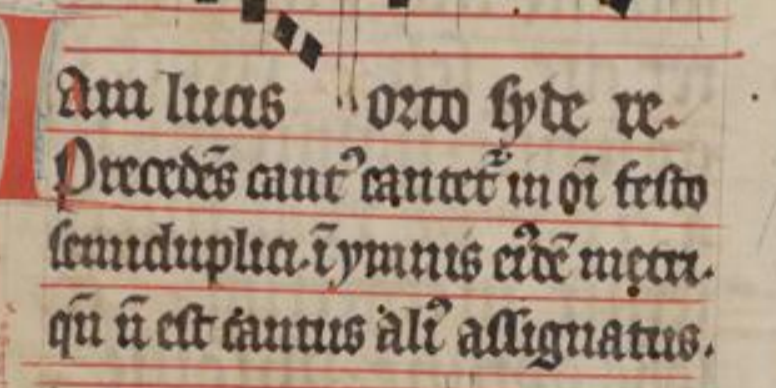 Iam lucis orto syde re.
Precedēs cantꝰ cantet᷑ in oī festo
semiduplici. ī ymnis eiꝰdē metri.
qn̄ n̄ est cantus aliꝰ assignatus.